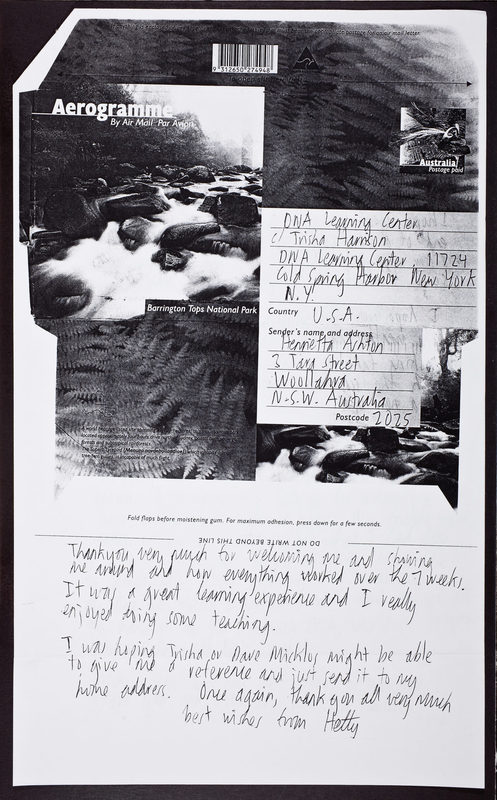 postage for an air mail letter.
9 312650 274948
Aerogramme
By Air Mail Par Avion
Australia
Postage paid
DNA Learning Center
c/ Trisha Harrison
DNA Learning Center, 11724
Cold Spring Harbor New York
N.Y.
Country U.S.A.
Barrington Tops National Park
Sender's name and address
Henrietta Ashton
3 Tara Street
Woollahra
N.S.W. Australia
Postcode 2025
Fold flaps before moistening gum. For maximum adhesion, press down for a few seconds.
DO NOT WRITE BEYOND THIS LINE
Thankyou very much for welcoming me and showing
me around and how everything worked over the 7 weeks.
It was a great learning experience and I really
enjoyed doing some teaching.
I was hoping Trisha or Dave Micklos might be able
to give me a reference and just send it to my
home address. Once again, thank you all very much
best wishes from Hetty